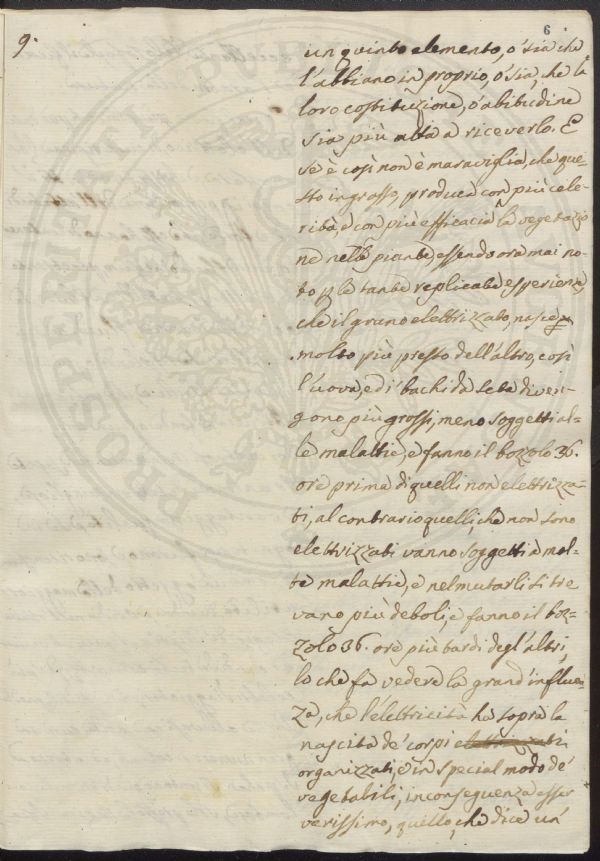 6
9.
un quinto elemento, ò sia che
l'abbiano in proprio, ò sia, che la
loro costituzione, ò abitudine
sia più atta à riceverlo. E
se è così non è maraviglia, che que-
sto ingrasso, produca con più cele-
rità, e con più efficacia la vegetazio
ne nelle piante, essendo ora mai no-
to p le tante replicate esperienze,
che il grano elettrizzato, nasce
molto più presto dell'altro, così
l'uova, e di bachi da seta diven-
gono più grossi, meno soggetti al-
le malattie, e fanno il bozzolo 36.
ore prima di quelli non elettrizza-
ti, al contrario quelli, che non sono
elettrizzati vanno soggetti à mol-
te malattie, e nel mutarli si tro
vano più deboli, e fanno il boz-
zolo 36. ore più tardi degl'altri,
lo che fà vedere la grand'influen
za, che l'elettricità ha sopra la
nascita de' corpi elettrizzati
organizzati, e in special modo de'
vegetabili, in conseguenza esser
verissimo, quello, che dice un'